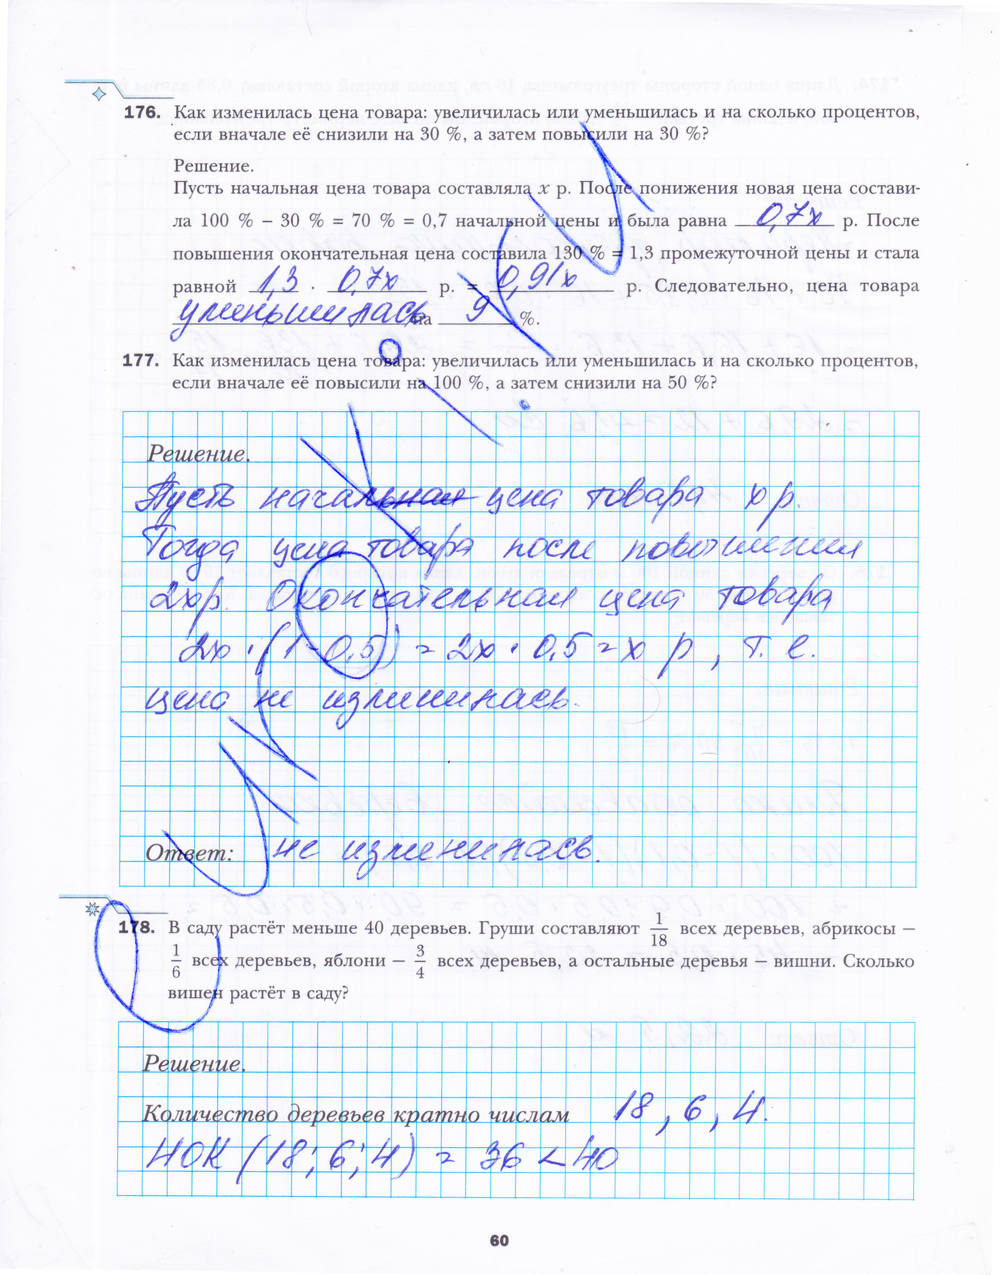 176. Как изменилась цена товара: увеличилась или уменьшилась и на сколько процентов,
если вначале её снизили на 30 %, а затем повысили на 30 %?
Решение.
Пусть начальная цена товара составляла x р. После понижения новая цена состави-
ла 100 % – 30 % = 70 % = 0,7 начальной цены и была равна 0,7x р. После
повышения окончательная цена составила 130 % = 1,3 промежуточной цены и стала
равной 1,3 · 0,7x р. = 0,91x р. Следовательно, цена товара
уменьшилась на 9 %.
177. Как изменилась цена товара: увеличилась или уменьшилась и на сколько процентов,
если вначале её повысили на 100 %, а затем снизили на 50 %?
Решение.
Пусть начальная цена товара x р.
Тогда цена товара после повышения
2x р. Окончательная цена товара
2x · (1 - 0,5) = 2x · 0,5 = x р, т. е.
цена не изменилась.
Ответ: не изменилась.
178. В саду растёт меньше 40 деревьев. Груши составляют 1/18 всех деревьев, абрикосы –
1/6 всех деревьев, яблони – 3/4 всех деревьев, а остальные деревья – вишни. Сколько
вишен растёт в саду?
Решение.
Количество деревьев кратно числам 18, 6, 4.
НОК (18; 6; 4) = 36 < 40
60